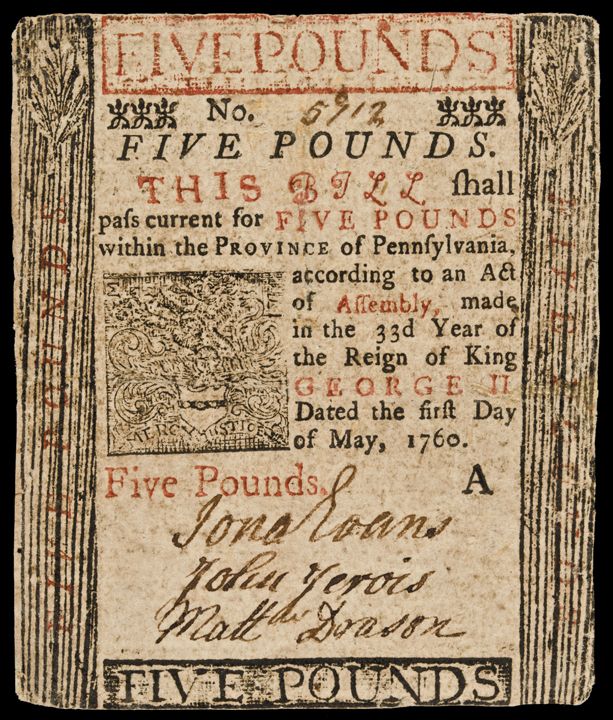 FIVE POUNDS
No. 5912
FIVE POUNDS.
THIS BILL ſhall
paſs current for FIVE POUNDS
within the PROVINCE of Pennſylvania,
according to an Act
of Aſſembly, made
in the 33d Year of
the Reign of King
GEORGE II
Dated the firſt Day
of May, 1760.
MERCY JUSTICE
Five Pounds. A
Jona Evans
John
Matt
FIVE POUNDS
FIVE POUNDS